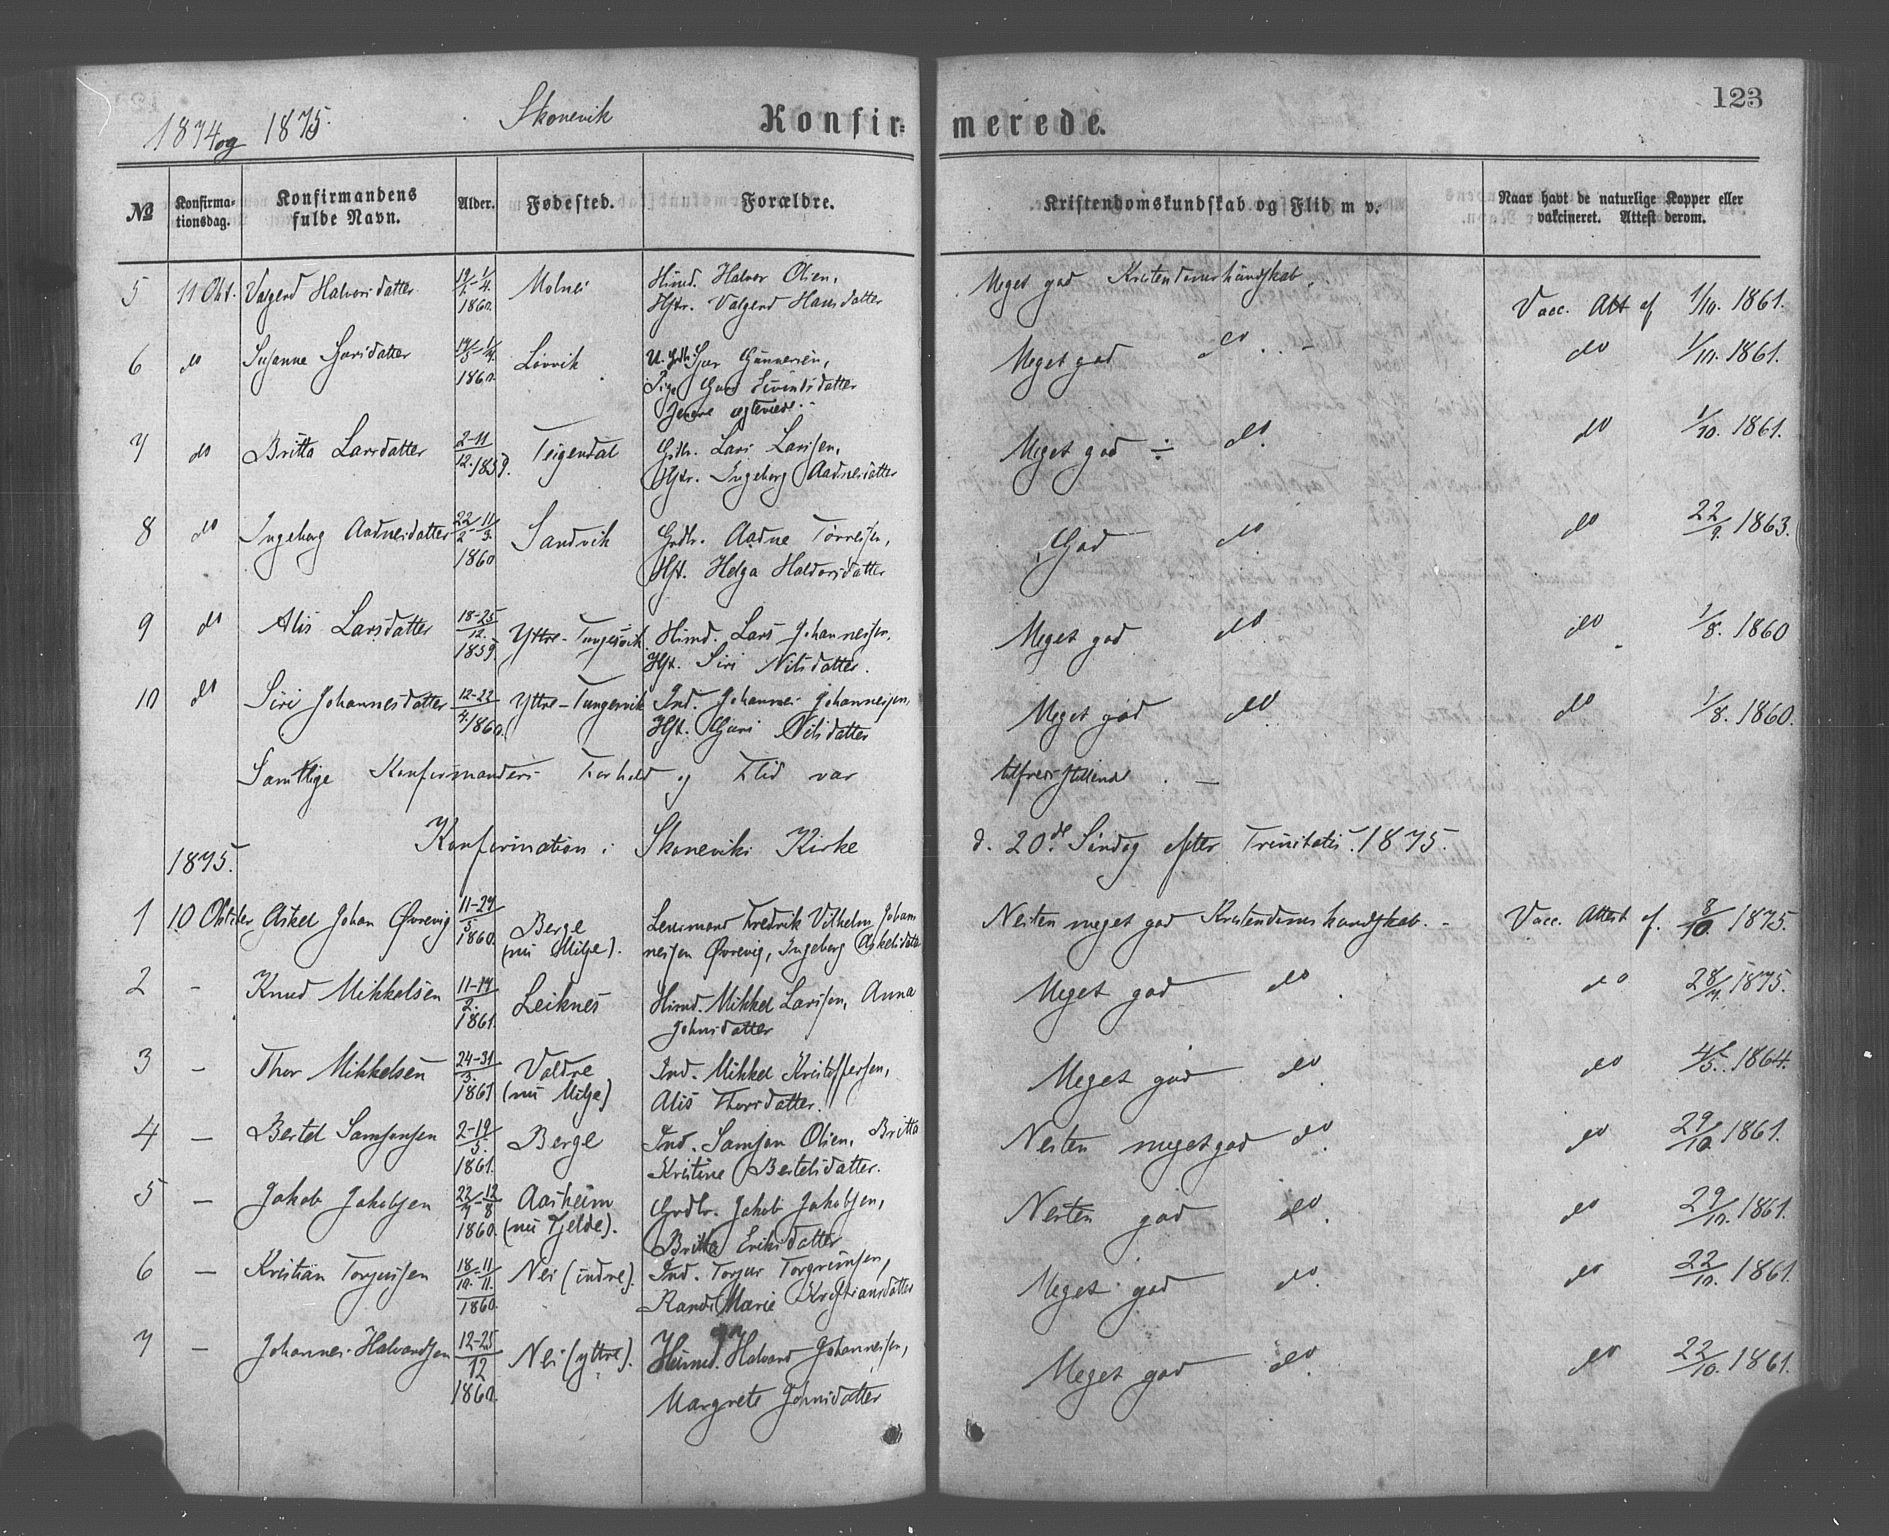 1874 og 1875. Skonevik Konfirmerede. 123
№ Konfirmationsdag. Konfirmandens fulde Navn. Alder. Fødested. Forældre. Kristendomskundskab og Flid m v. Naar havt de naturlige Kopper eller vakcineret. Attest derom.
5 11 Okt. Valgerd Halvorsdatter 1860. Molnes Husmd. Halvor Olsen, Meget god Kristendomskundskab. Vacc. Att af 1/10. 1861.
Hstr. Valgerd Hansdatter
6 do Susanne Sjursdatter 1860. Løvvik U. Grdbr. Sjur Gunnarsen, Meget god do do 1/10. 1861.
Pige Guro Sivertsdatter
Senere ægteviede.
7 do Britta Larsdatter 2-11/12. 1859. Teigendal Grdbr. Lars Larssen, Meget god ÷ do. do 1/10. 1861.
Hstr. Ingeborg Aadnesdatter
8 do Ingeborg Aadnesdatter 22/2-11/3. 1860 Sandvik Grdbr. Aadne Tørresen, God do do 22/9. 1863.
Hst. Helga Haldorsdatter
9 do Alis Larsdatter 18-25/12. 1859 Yttre-Tungesvik Husmd. Lars Johannessen, Meget god do do 1/8. 1860
Hst. Siri Nilsdatter.
10 do Siri Johannesdatter 12-22/4. 1860. Yttre-Tungesvik Ind. Johannes Johannessen, Meget god do do 1/8. 1860.
Hst. Guri Nilsdatter
Samtlige Konfirmanders Forhold og Flid var tilfredsstillende. —
1875. Konfirmation i Skoneviks Kirke d. 20de Søndag efter Trinitatis. 1875.
1 10 Oktober Askel Johan Øvrevig 11-27/5. 1860. Berge Lensmand Fredrik Vilhelm Johan Nesten meget god Kristendomskundskab. - Vacc. Attest af. 8/10. 1875.
(nu Milje). nessen Øvrevig, Ingeborg Askelsdatter
2 - Knud Mikkelsen 11-17/2. 1861. Leiknes Husmd. Mikkel Larssen, Anna Meget god do. do 28/7. 1875.
Johnsdatter
3 - Thor Mikkelsen 24-31/3. 1861 Valdre Ind. Mikkel Kristoffersen, Meget god do. do 4/5. 1864.
(nu Milje) Alis Thorsdatter.
4 - Bertel Samsonsen 2-19/5. 1861. Berge Ind. Samson Olsen, Britta Nesten meget god do do 29/10 1861.
Kristine Bertelsdatter.
5 - Jakob Jakobsen 22/7-12/8 1860. Aasheim Grdbr. Jakob Jakobsen, Nesten god do. do 29/10. 1861.
(nu Tjelde). Britta Eriksdatter
6 - Kristian Torjussen 18/10-11/11. 1860. Nes (indre). Ind. Torjus Torgrimsen, Meget god do. do 22/10. 1861.
Randi Marie Kristiansdatter
7 - Johannes Halvardsen 12-25/12 1860. Nes (yttre). Husmd. Halvard Johannessen, Meget god do. do 22/10. 1861.
Margrete Johnsdatter